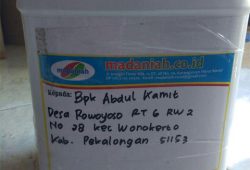 madanlab.co.id
madanlab
Kepada: Bpk Abdul Kamit
Desa Rowoyoso RT 6 RW 2
No 28 kec Wonokerto
Kab. Pekalongan 51153